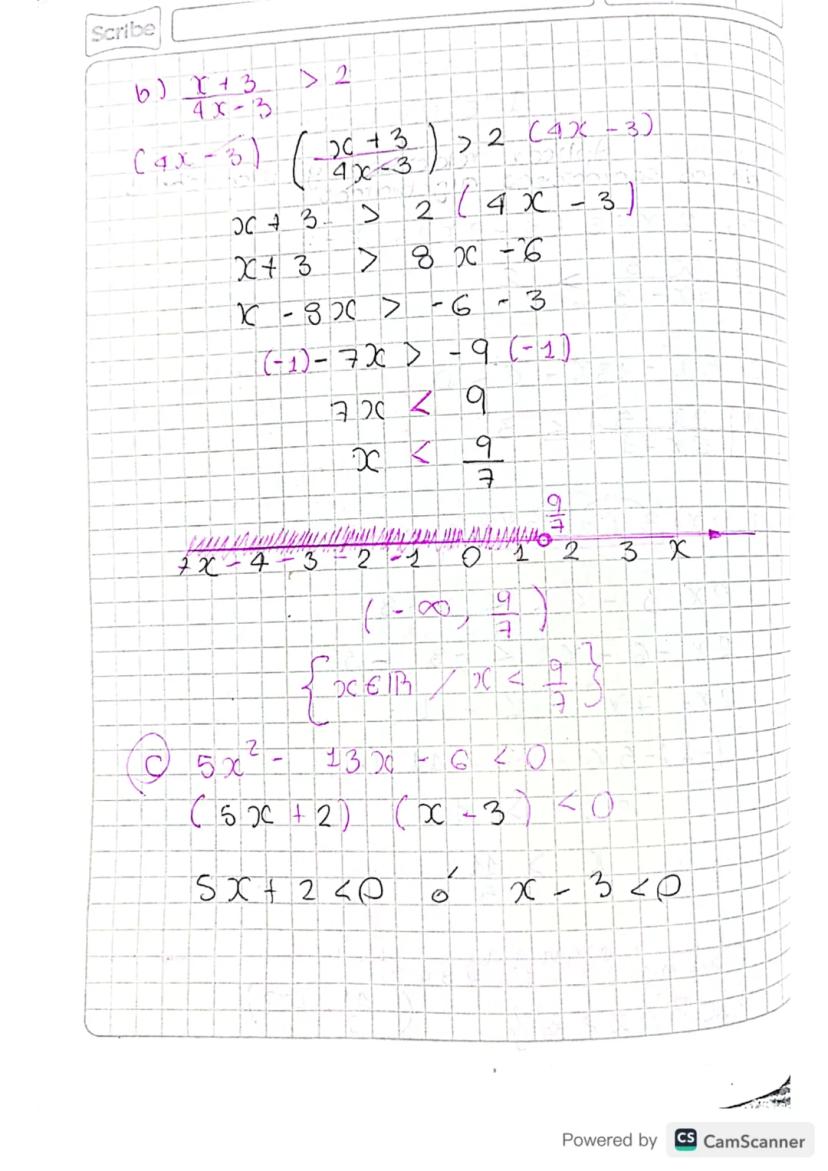 Scribe
b) x + 3 / 4x - 3 > 2
(4x - 3) (x + 3 / 4x - 3) > 2 (4x - 3)
x + 3 > 2 (4x - 3)
x + 3 > 8x - 6
x - 8x > -6 - 3
(-1) - 7x > -9 (-1)
7x < 9
x < 9/7
9/7
7x - 4 - 3 - 2 - 1 0 1 2 3 x
(-∞, 9/7)
{x ∈ IR / x < 9/7}
c) 5x² - 13x - 6 < 0
(5x + 2) (x - 3) < 0
5x + 2 < 0 ó x - 3 < 0
Powered by CS CamScanner